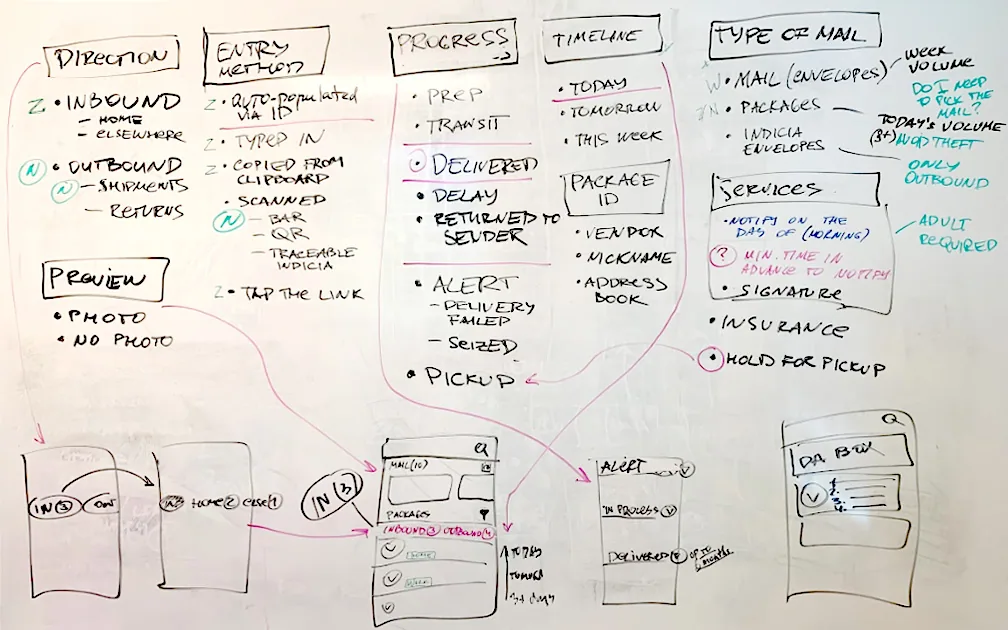 DIRECTION
• INBOUND
– HOME
– ELSEWHERE
• OUTBOUND
N
N – SHIPMENTS
– RETURNS
PREVIEW
• PHOTO
• NO PHOTO
ENTRY
METHOD
• AUTO-POPULATED
VIA ID
• TYPED IN
• COPIED FROM
CLIPBOARD
• SCANNED
N – BAR
– QR
– TRACEABLE
INDICIA
• TAP THE LINK
PROGRESS
• PREP
• TRANSIT
• DELIVERED
• DELAY
• RETURNED TO
SENDER
• ALERT
– DELIVERY
FAILED
– SEIZED
• PICKUP
TIMELINE
• TODAY
• TOMORROW
• THIS WEEK
PACKAGE
ID
• VENDOR
• NICKNAME
• ADDRESS
BOOK
TYPE OF MAIL
• MAIL (ENVELOPES)
• PACKAGES
• INDICIA
ENVELOPES
WEEK
VOLUME
DO I NEED
TO PICK THE
MAIL?
TODAY'S VOLUME
(3+) AVOID THEFT
ONLY
OUTBOUND
SERVICES
• NOTIFY ON THE
DAY OF (MORNING)
? MIN. TIME IN
ADVANCE TO NOTIFY
• SIGNATURE
ADULT
REQUIRED
• INSURANCE
• HOLD FOR PICKUP
IN (3) OUT
HOME 2 ELSE 1
IN (3)
MAIL (10)
PACKAGES
INBOUND 3 OUTBOUND 4
HOME
TODAY
ALERT
IN PROCESS
DELIVERED
UP TO
DA BOX